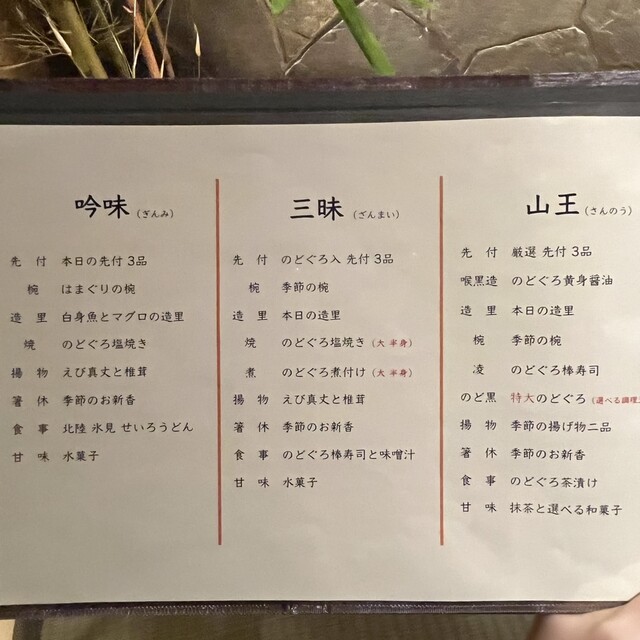 吟味(ぎんみ)
先付 本日の先付 3品
椀 はまぐりの椀
造里 白身魚とマグロの造里
焼 のどぐろ塩焼き
揚物 えび真丈と椎茸
箸休 季節のお新香
食事 北陸 氷見 せいろうどん
甘味 水菓子
三昧(ざんまい)
先付 のどぐろ入 先付 3品
椀 季節の椀
造里 本日の造里
焼 のどぐろ塩焼き(大 半身)
煮 のどぐろ煮付け(大 半身)
揚物 えび真丈と椎茸
箸休 季節のお新香
食事 のどぐろ棒寿司と味噌汁
甘味 水菓子
山王(さんのう)
先付 厳選 先付 3品
喉黒造 のどぐろ黄身醤油
造里 本日の造里
椀 季節の椀
凌 のどぐろ棒寿司
のど黒 特大のどぐろ(選べる調理
揚物 季節の揚げ物二品
箸休 季節のお新香
食事 のどぐろ茶漬け
甘味 抹茶と選べる和菓子